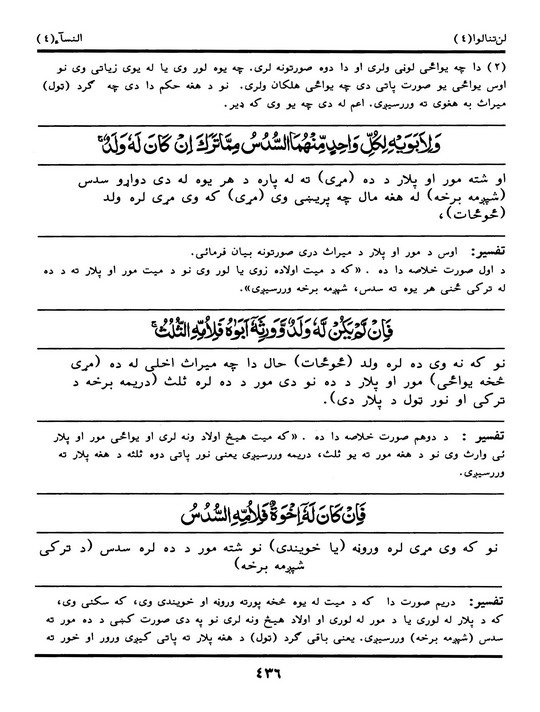 لن تنالوا (٤) النسآء (٤)
(٢) دا چه يواځي لوڼي ولري او دا دوه صورتونه لري. چه يوه لور وي يا له يوي زياتي وي نو
اوس يواځي يو صورت پاتي دى چه يواځي هلكان ولري. نو د هغه حكم دا دى چه گرد (ټول)
ميراث به هغوى ته وررسيږي. اعم له دى چه يو وي كه ډير.
وَلِأَبَوَيْهِ لِكُلِّ وَاحِدٍ مِّنْهُمَا السُّدُسُ مِمَّا تَرَكَ إِنْ كَانَ لَهُ وَلَدٌ ۚ
او شته مور او پلار د ده (مړي) ته له پاره د هر يوه له دى دواړو سدس
(شپږمه برخه) له هغه مال چه پريښى وي (مړي) كه وي مړي لره ولد
(څوځات)،
تفسير: اوس د مور او پلار د ميراث درى صورتونه بيان فرمائى.
د اول صورت خلاصه دا ده . «كه د ميت اولاده زوى يا لور وي نو د ميت مور او پلار ته د ده
له تركى ځنى هر يوه ته سدس، شپږمه برخه وررسيږي».
فَإِنْ لَّمْ يَكُنْ لَّهُ وَلَدٌ وَّوَرِثَهُ أَبَوَاهُ فَلِأُمِّهِ الثُّلُثُ ۚ
نو كه نه وي ده لره ولد (څوځات) حال دا چه ميراث اخلى له ده (مړي
څخه يواځي) مور او پلار د ده نو دى مور د ده لره ثلث (دريمه برخه د
تركى او نور ټول د پلار دى).
تفسير : د دوهم صورت خلاصه دا ده . «كه ميت هيڅ اولاد ونه لرى او يواځي مور او پلار
ئى وارث وي نو د هغه مور ته يو ثلث، دريمه وررسيږي يعنى نور پاتى دوه ثلثه د هغه پلار ته
وررسيږي.
فَإِنْ كَانَ لَهُ إِخْوَةٌ فَلِأُمِّهِ السُّدُسُ
نو كه وي مړي لره وروڼه (يا خويندى) نو شته مور د ده لره سدس (د تركى
شپږمه برخه)
تفسير: دريم صورت دا كه د ميت له يوه څخه پورته وروڼه او خويندى وي، كه سكنى وي،
كه د پلار له لورى يا د مور له لورى او اولاد هيڅ ونه لرى نو په دى صورت كښى د ده مور ته
سدس (شپږمه برخه) وررسيږي. يعنى باقى گرد (ټول) د هغه پلار ته پاتى كيږي ورور او خور ته
٤٣٦